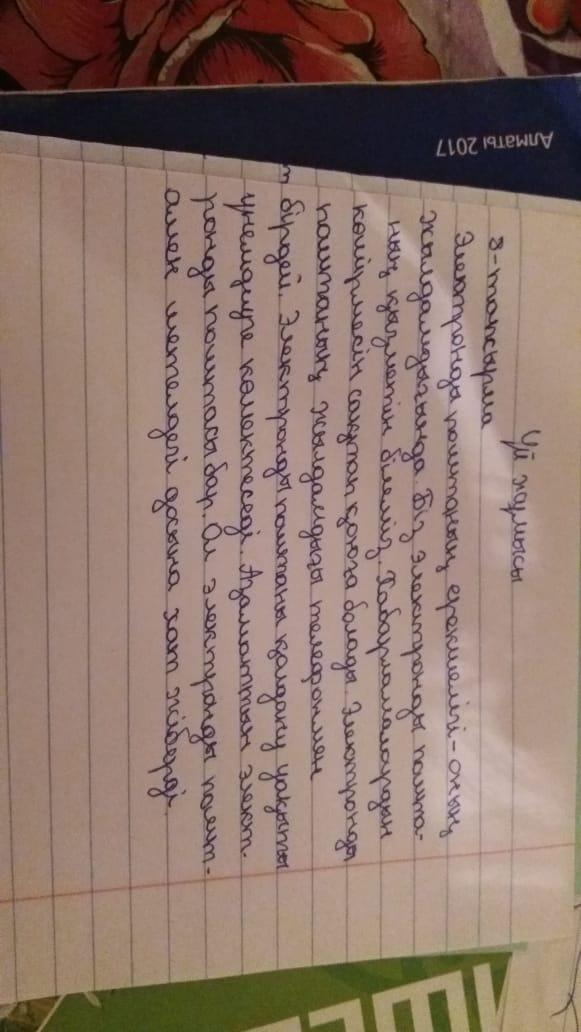 Алматы 2017
Үй жұмысы
8-тапсырма
Электронды поштаның ерекшелігі-оның
жылдамдығында. Біз электронды пошта-
ның қызметін білеміз. Хабарламалардың
көшірмесін сақтап қоюға болады. Электронды
поштаның жылдамдығы телефонмен
бірдей. Электронды поштаны қолдану уақытты
үнемдеуге көмектеседі. Азаматтың элект-
ронды поштасы бар. Ол электронды пошт-
амен шетелдегі досына хат жіберді.